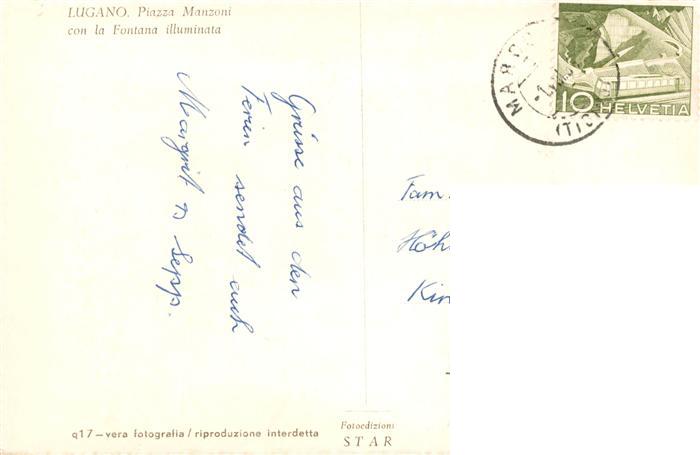 LUGANO. Piazza Manzoni
con la Fontana illuminata
Grüsse aus den
Ferien sendet euch
Margrit & Sepp.
Fam.
Höh
Kin
10 HELVETIA
(TICI
q17 — vera fotografia / riproduzione interdetta
Fotoedizioni
STAR